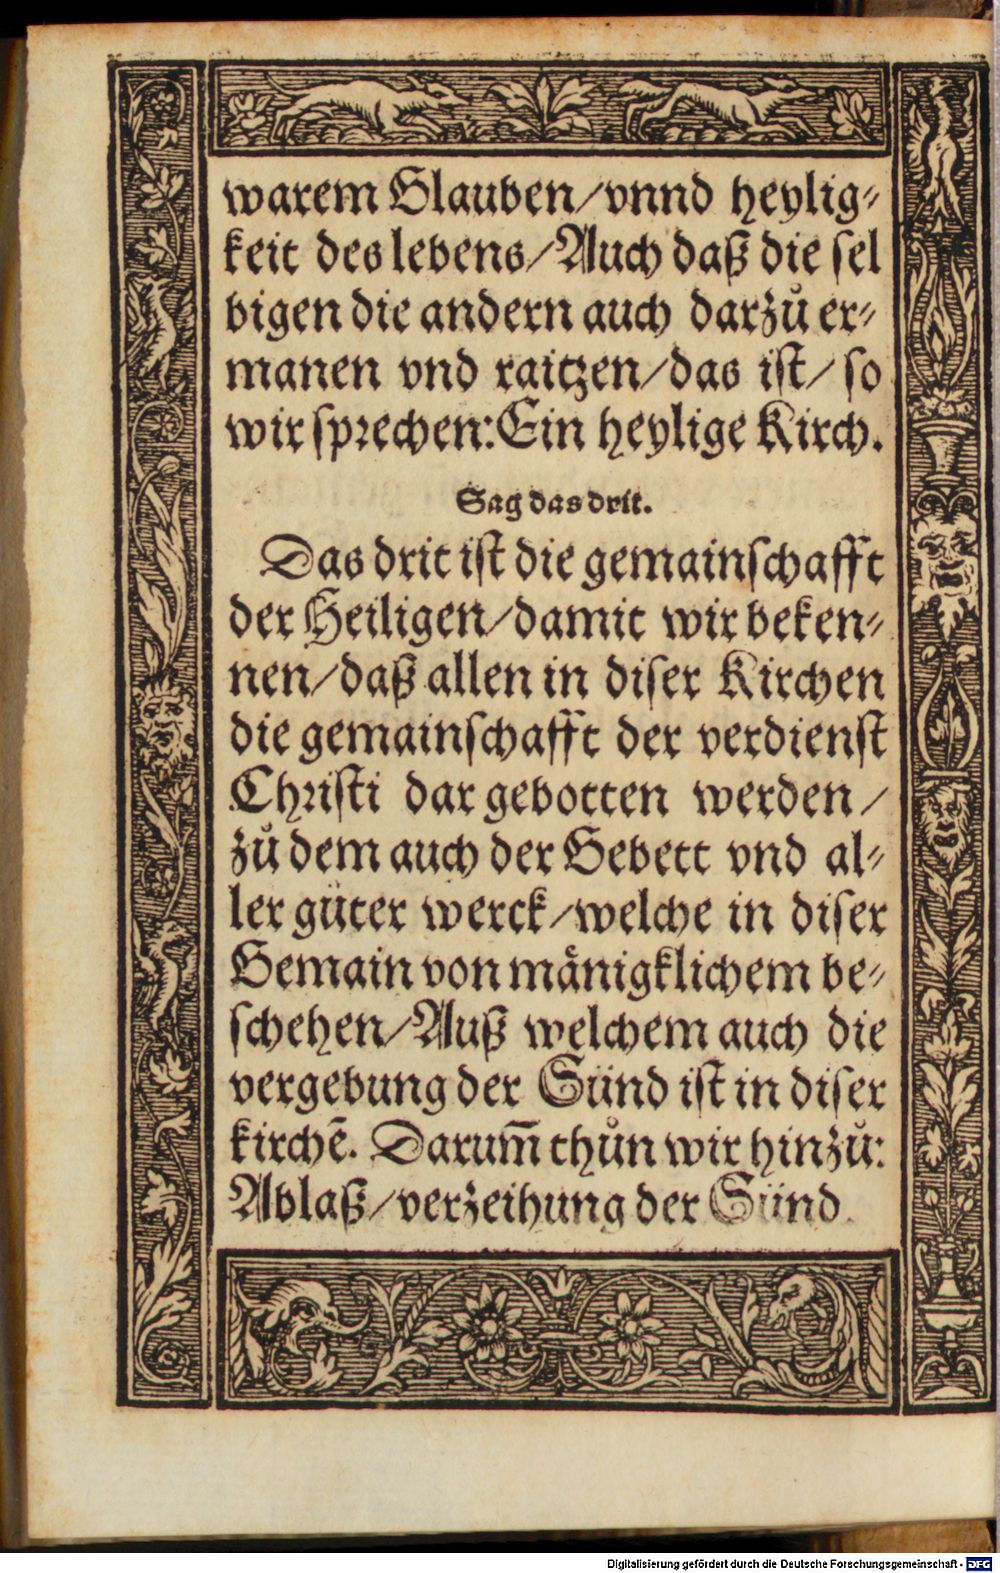 warem Glauben/vnnd heylig⸗
keit des lebens/Auch daß die sel
bigen die andern auch darzů er⸗
manen vnd raitzen/das ist/so
wir sprechen:Ein heylige Kirch.
Sag das drit.
Das drit ist die gemainschafft
der Heiligen/damit wir beken⸗
nen/daß allen in diser Kirchen
die gemainschafft der verdienst
Christi dar gebotten werden/
zů dem auch der Gebett vnd al⸗
ler gůter werck/welche in diser
Gemain von mänigklichem be⸗
schehen/Auß welchem auch die
vergebung der Sünd ist in diser
kirchē. Darum̄ thůn wir hinzů:
Ablaß/verzeihung der Sünd.
Digitalisierung gefördert durch die Deutsche Forschungsgemeinschaft - DFG